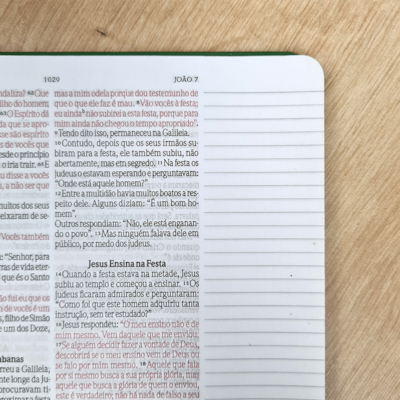 1029
JOÃO 7
ndaliza? 62 Que
ilho do homem
O Espírito dá
da que se apro-
que são espírito
s de vocês que
esde o princípio
o iria trair.
u disse a vocês
, a não ser que
muitos dos seus
eixaram de se-
Vocês também
: "Senhor, para
ras de vida eter-
que és o Santo
ão fui eu que os
m de vocês é um
, filho de Simão
e um dos Doze,
banas
rreu a Galileia,
ente longe da Ju-
procuravam ti-
mas a mim odeia porque dou testemunho de
que o que ele faz é mau. 8 Vão vocês à festa;
eu ainda não subirei a esta festa, porque para
mim ainda não chegou o tempo apropriado".
9 Tendo dito isso, permaneceu na Galileia.
10 Contudo, depois que os seus irmãos su-
biram para a festa, ele também subiu, não
abertamente, mas em segredo. 11 Na festa os
judeus o estavam esperando e perguntavam:
"Onde está aquele homem?"
12 Entre a multidão havia muitos boatos a res-
peito dele. Alguns diziam: "É um bom ho-
mem".
Outros respondiam: "Não, ele está enganan-
do o povo". 13 Mas ninguém falava dele em
público, por medo dos judeus.
Jesus Ensina na Festa
14 Quando a festa estava na metade, Jesus
subiu ao templo e começou a ensinar. 15 Os
judeus ficaram admirados e perguntaram:
"Como foi que este homem adquiriu tanta
instrução, sem ter estudado?"
16 Jesus respondeu: "O meu ensino não é de
mim mesmo. Vem daquele que me enviou.
17 Se alguém decidir fazer a vontade de Deus,
descobrirá se o meu ensino vem de Deus ou
se falo por mim mesmo. 18 Aquele que fala
por si mesmo busca a sua própria glória, mas
aquele que busca a glória de quem o enviou,
este é verdadeiro; não há nada de falso a seu